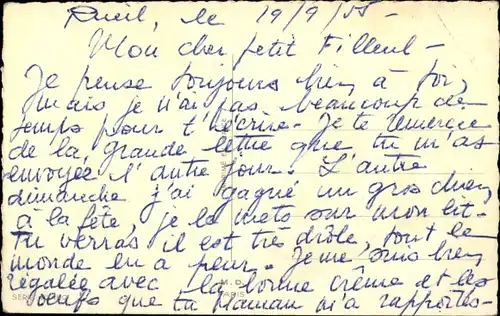 Rueil, le 19/9/55 -
Mon cher petit Filleul -
Je pense toujours bien à toi,
mais je n'ai pas beaucoup de
temps pour t'écrire - Je te remercie
de la grande lettre que tu m'as
envoyée l'autre jour. L'autre
dimanche j'ai gagné un gros chien
à la fête, je le mets sur mon lit -
Tu verras il est très drôle, tout le
monde en a peur - Je me suis bien
régalée avec la bonne crème et les
oeufs que ta Maman m'a rapportés -
PARIS